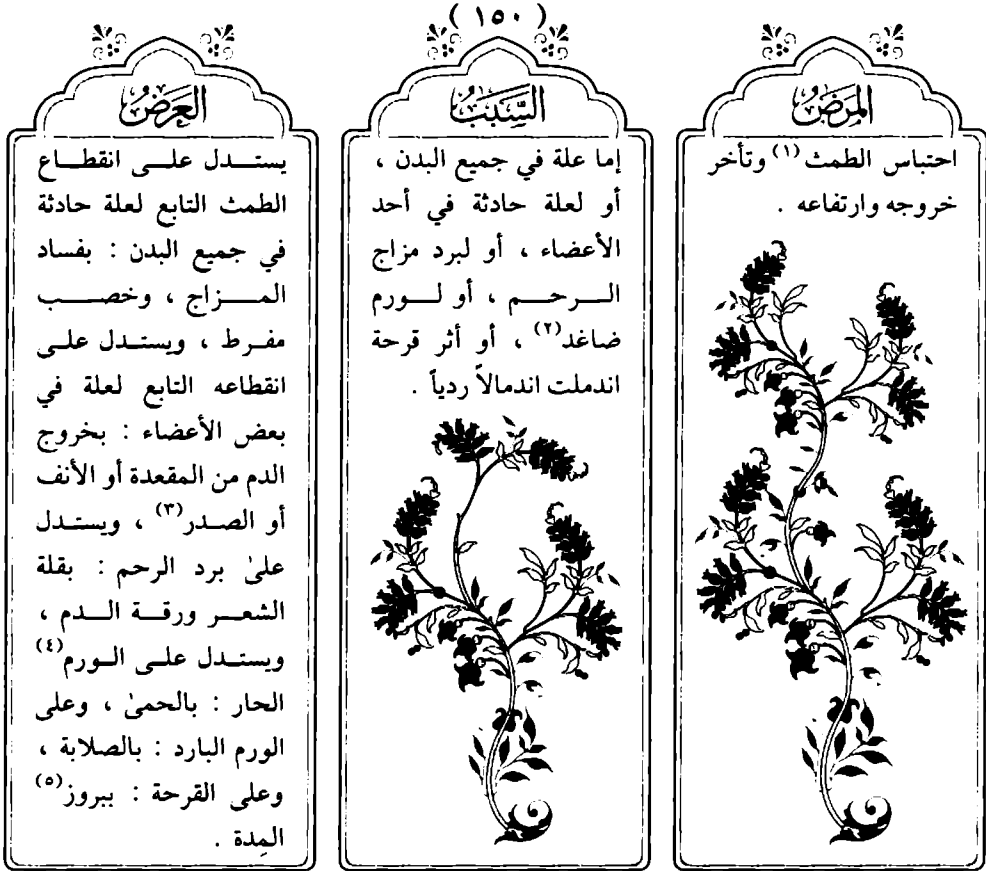 ( ١٥٠ )
المَرَضُ
احتباس الطمث(١) وتأخر
خروجه وارتفاعه .
السَّبَبُ
إما علة في جميع البدن ،
أو لعلة حادثة في أحد
الأعضاء ، أو لبرد مزاج
الرحم ، أو لورم
ضاغد(٢) ، أو أثر قرحة
اندملت اندمالاً ردياً .
العَرَضُ
يستدل على انقطاع
الطمث التابع لعلة حادثة
في جميع البدن : بفساد
المزاج ، وخصب
مفرط ، ويستدل على
انقطاعه التابع لعلة في
بعض الأعضاء : بخروج
الدم من المقعدة أو الأنف
أو الصدر(٣) ، ويستدل
علىٰ برد الرحم : بقلة
الشعر ورقة الدم ،
ويستدل على الورم(٤)
الحار : بالحمىٰ ، وعلى
الورم البارد : بالصلابة ،
وعلى القرحة : ببروز(٥)
المِدة .